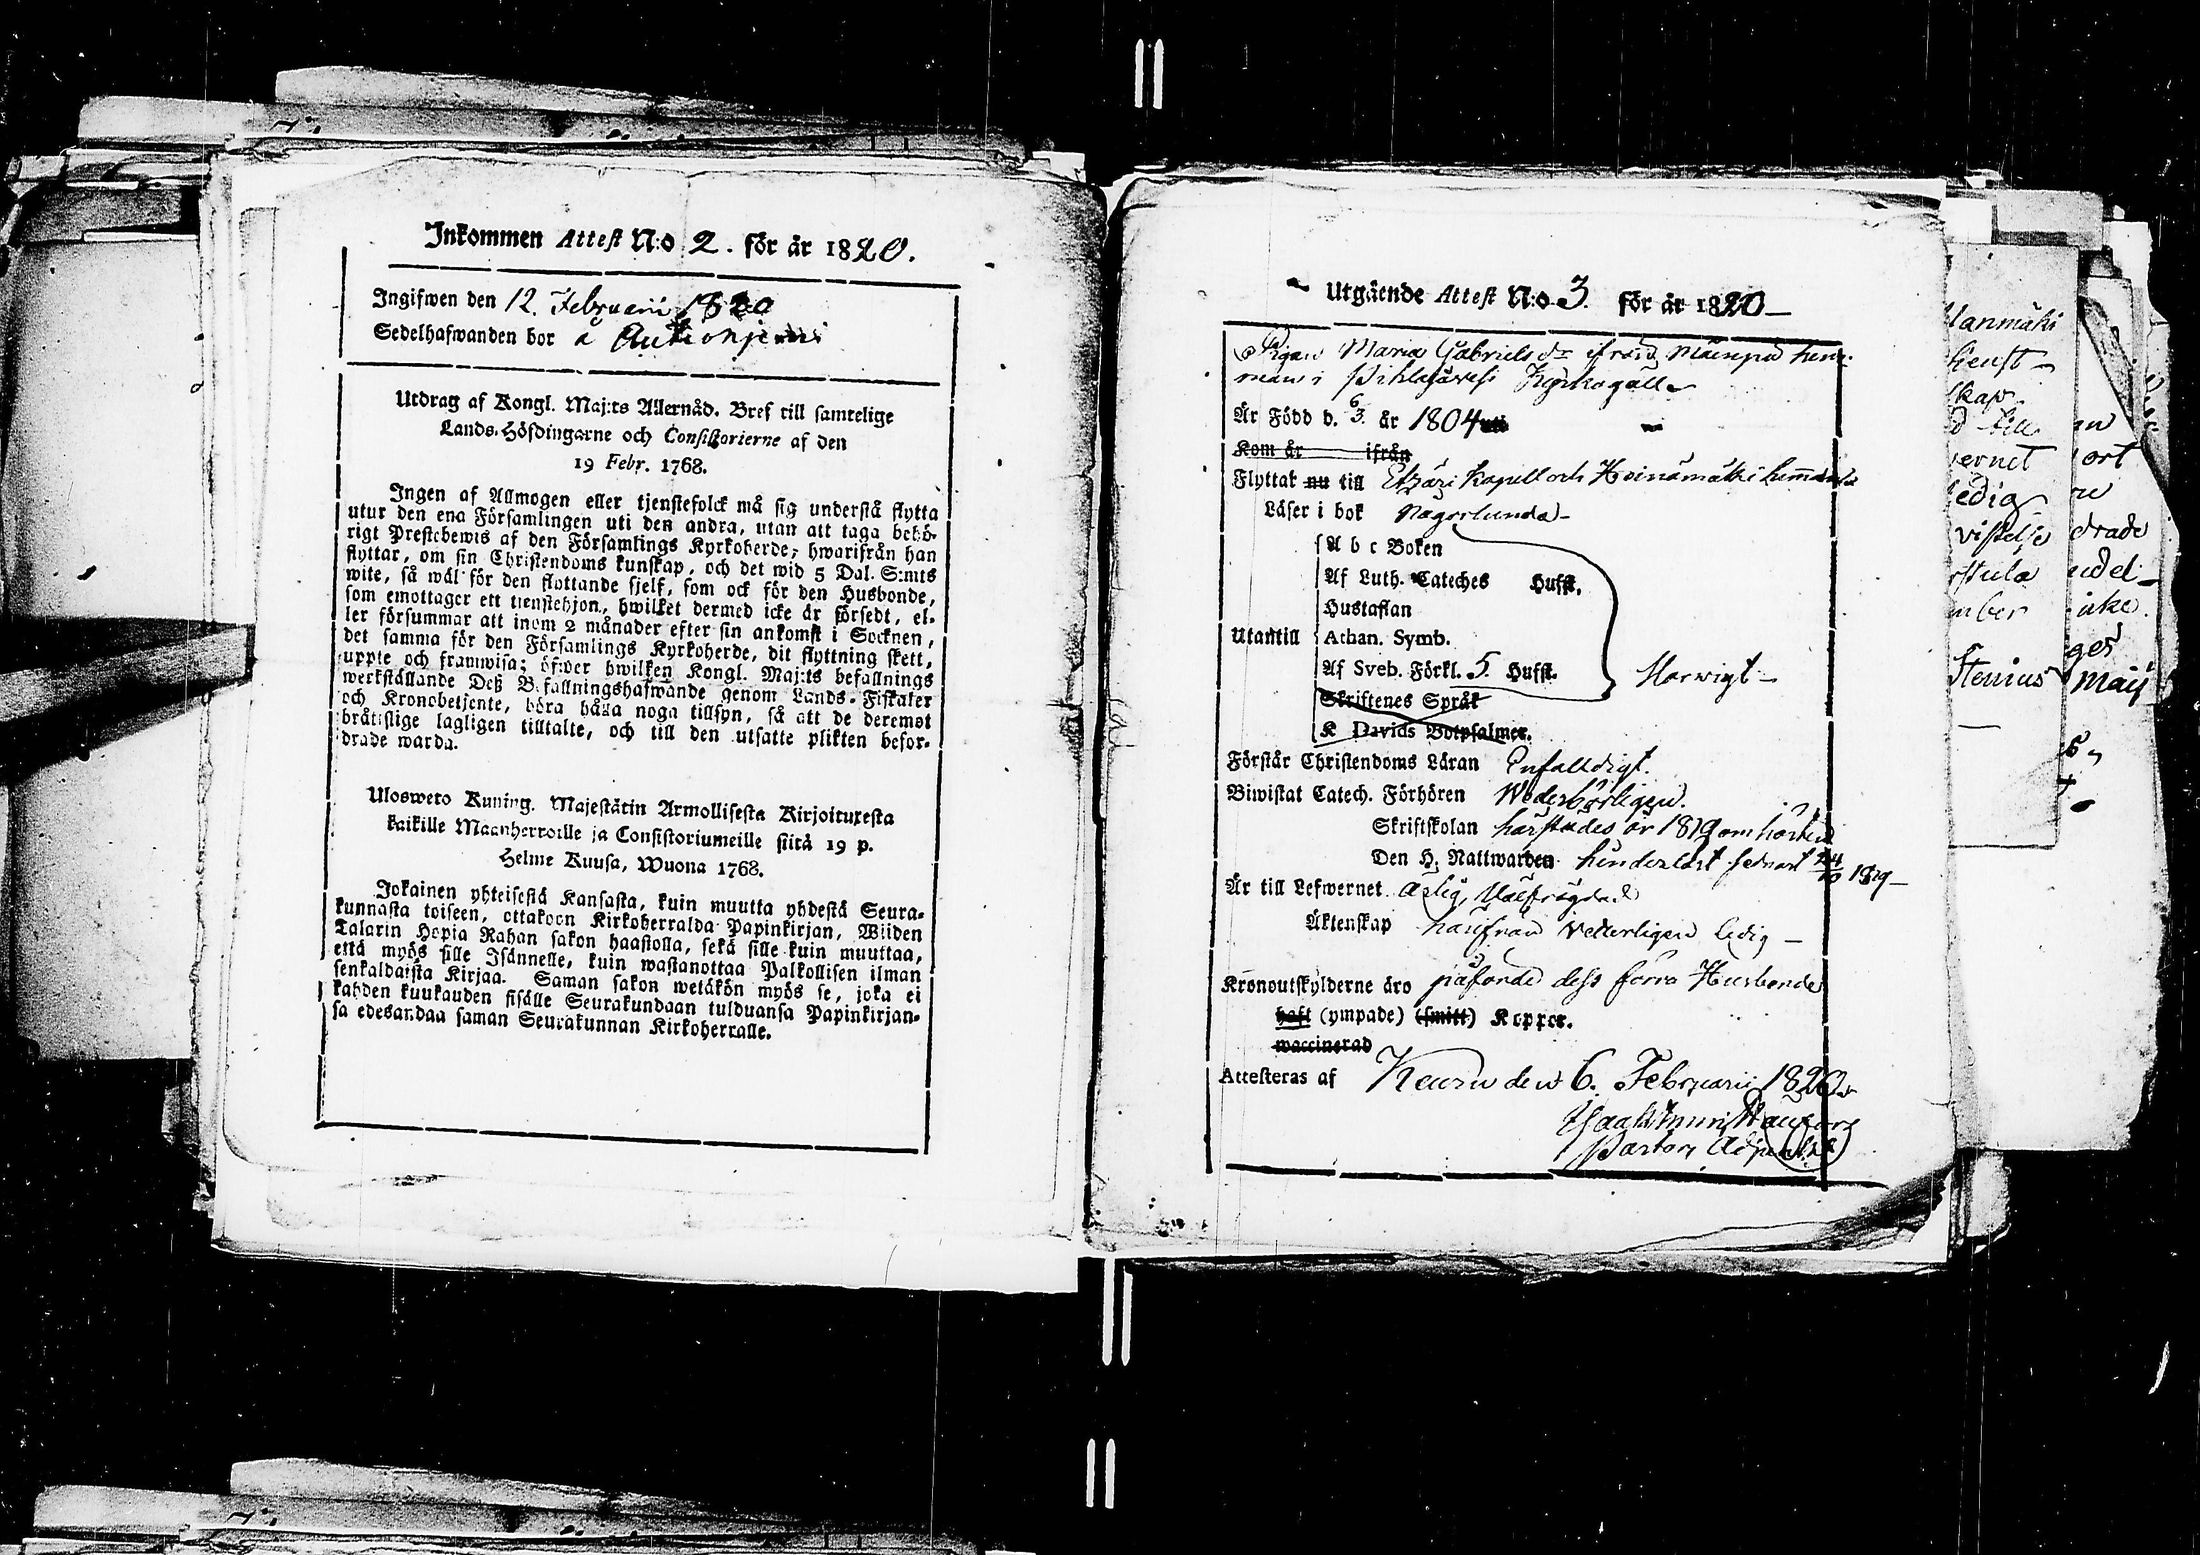 Inkommen Attest N:o 2. för år 1820.
Ingifwen den 12. Februarii 1820
Sedelhafwanden bor å
Utdrag af Kongl. Maj:ts Allernåd. Bref till samtelige
Lands-Höfdingarne och Consistorierne af den
19 Febr. 1768.
Ingen af Allmogen eller tjenstefolck må sig understå flytta
utur den ena Församlingen uti den andra, utan att taga behö-
rigt Prestebewis af den Församlings Kyrkoherde, hwarifrån han
flyttar, om sin Christendoms kunskap, och det wid 5 Dal. S:mts
wite, så wäl för den flyttande sjelf, som ock för den Husbonde,
som emottager ett tjenstehjon, hwilket dermed icke är försedt, el-
ler försummar att inom 2 månader efter sin ankomst i Socknen,
det samma för den Församlings Kyrkoherde, dit flyttning skett,
uppte och framwisa; öfwer hwilken Kongl. Maj:ts befallnings
werkställande Deß Befallningshafwande genom Lands-Fiskaler
och Kronobetjente, böra hålla noga tillsyn, så att de deremot
bråtislige lagligen tilltalte, och till den utsatte plikten befor-
drade warda.
Ulosweto Kuning. Majestätin Armollisesta Kirjoituxesta
kaikille Maanherroille ja Consistoriumeille siitä 19 p.
Helme Kuusa, Wuona 1768.
Jokainen yhteisestä Kansasta, kuin muutta yhdestä Seura-
kunnasta toiseen, ottakoon Kirkoherralda Papinkirjan, Wiiden
Talarin Hopia Rahan sakon haastolla, sekä sille kuin muuttaa,
että myös sille Isännelle, kuin wastanottaa Palkollisen ilman
senkaldaista Kirjaa. Saman sakon wetäkön myös se, joka ei
kahden kuukauden sisälle Seurakundaan tulduansa Papinkirjan-
sa edesandaa saman Seurakunnan Kirkoherralle.
Utgående Attest N:o 3. för år 1820
Pigan Maria Gabrielsdr ifrån
i Pihlajawesi
Är Född d. 6/3. år 1804
Kom år ifrån
Flyttat nu till Etzäri Kapell och Heinämäki
Läser i bok Någorlunda
A b c Boken
Af Luth. Cateches Hufst.
Hustaflan
Utantill Athan. Symb.
Af Sveb. Förkl. 5. Hufst.
Skriftenes Språk
K Davids Botpsalmer.
Förstår Christendoms Läran Enfalldigt.
Biwistat Catech. Förhören Wederbörligen.
Skriftskolan härstädes år 1819
Den H. Nattwarden hinderlöst senast 24/10 1819
Är till Lefwernet Ärlig, Välfrägdad
Äktenskap härifrån Vetterligen ledig
Kronoutskylderne äro påförde dess förra Husbonde
haft (ympade) (smitt) Koppor.
waccinerad
Attesteras af Keuru den 6. Februarii 1820
Pastors Adjunct